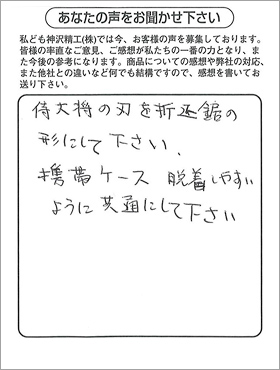 あなたの声をお聞かせ下さい
私ども神沢精工(株)では今、お客様の声を募集しております。
皆様の率直なご意見、ご感想が私たちの一番の力となり、ま
た今後の参考になります。商品についての感想や弊社の対応、
また他社との違いなど何でも結構ですので、感想を書いてお
送り下さい。
侍大将の刃を折込鋸の
形にして下さい、
携帯ケース 脱着しやすい
ように共通にして下さい